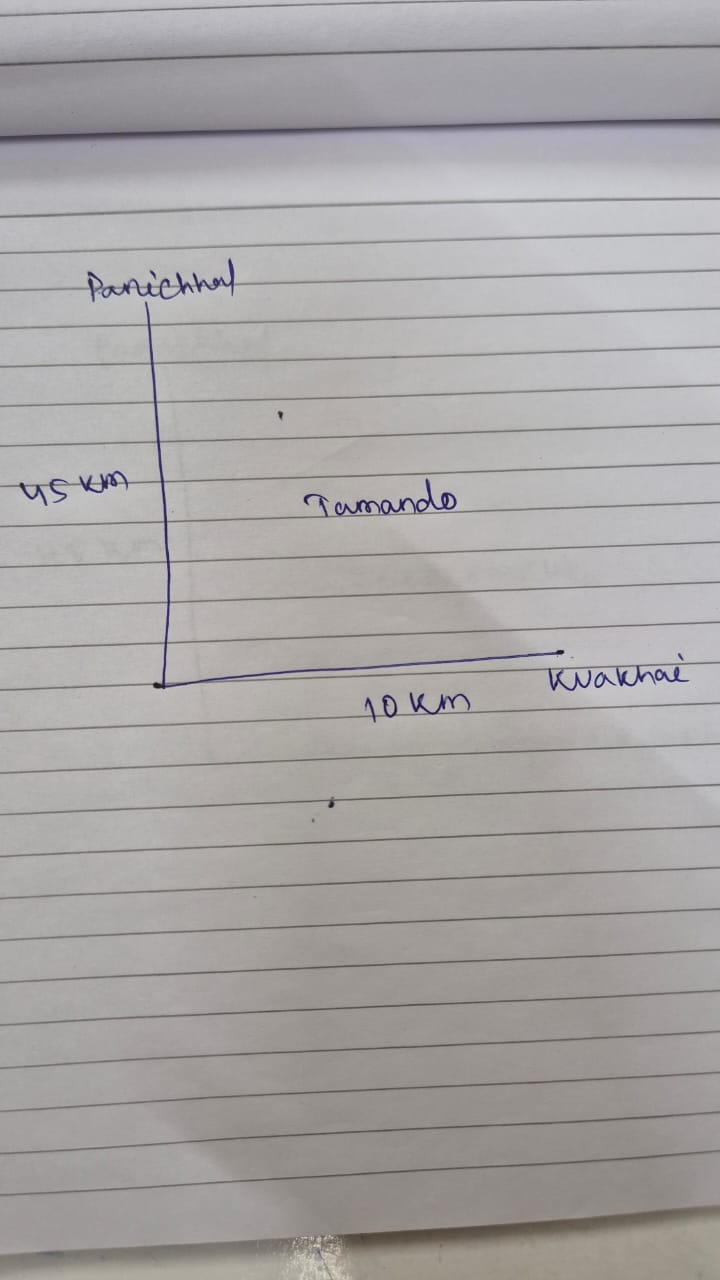 Panichhal
45 km
Tamando
10 km
Kuakhai